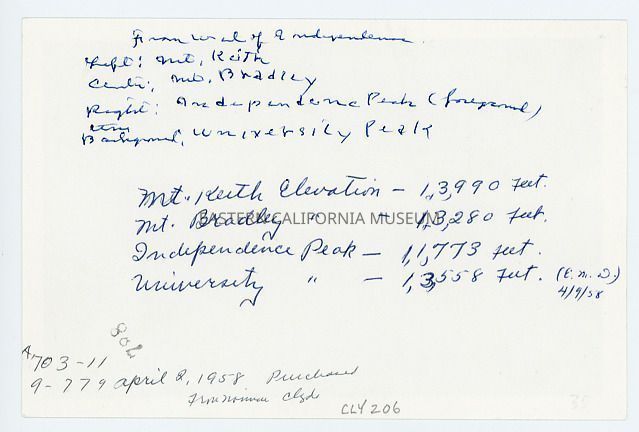 From West of Independence.
Left: Mt. Keith
Center; Mt. Bradley
Right: Independence Peak (foreground)
Background, University Peak
Mt. Keith Elevation – 1,3,990 feet.
Mt. Bradley " – 1,3,280 feet.
EASTERN CALIFORNIA MUSEUM
Independence Peak – 1,1,773 feet.
University " – 1,3,558 feet. (E. M. D.)
4/9/58
A703-11
9-779 april 2, 1958 Purchased
From Norman Clyde
CLY 206
35